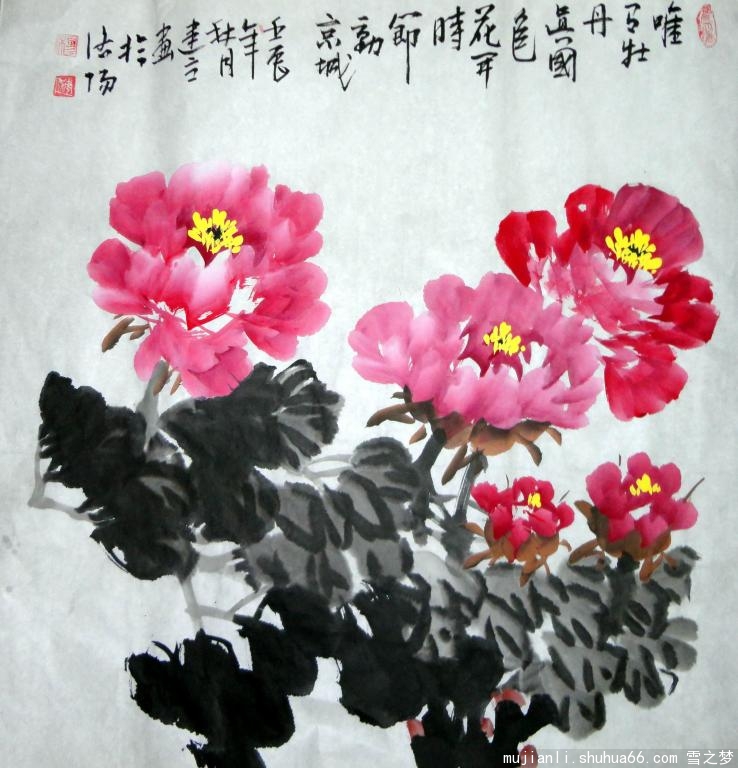 唯有牡
丹
真國
色
花開
時
節
動
京城
壬辰
年
秋月
建立
畫
於
洛陽
mujianli.shuhua66.com 雪之梦